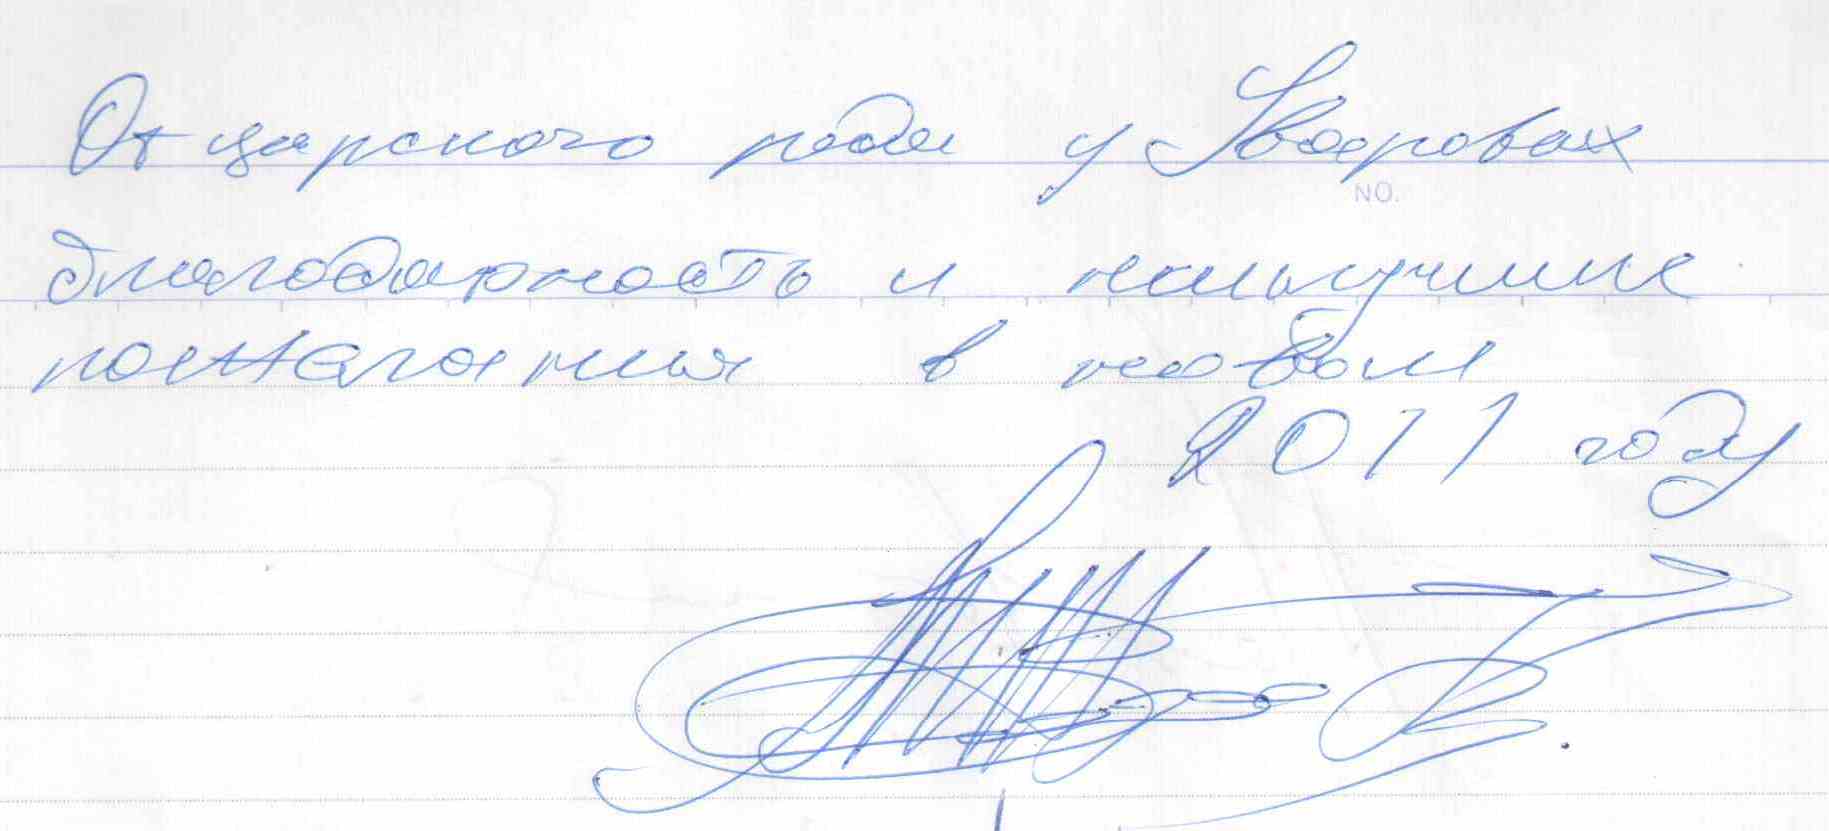 От царского рода у Яворовах
NO.
благодарность и наилучшие
пожелания в новом
2011 году